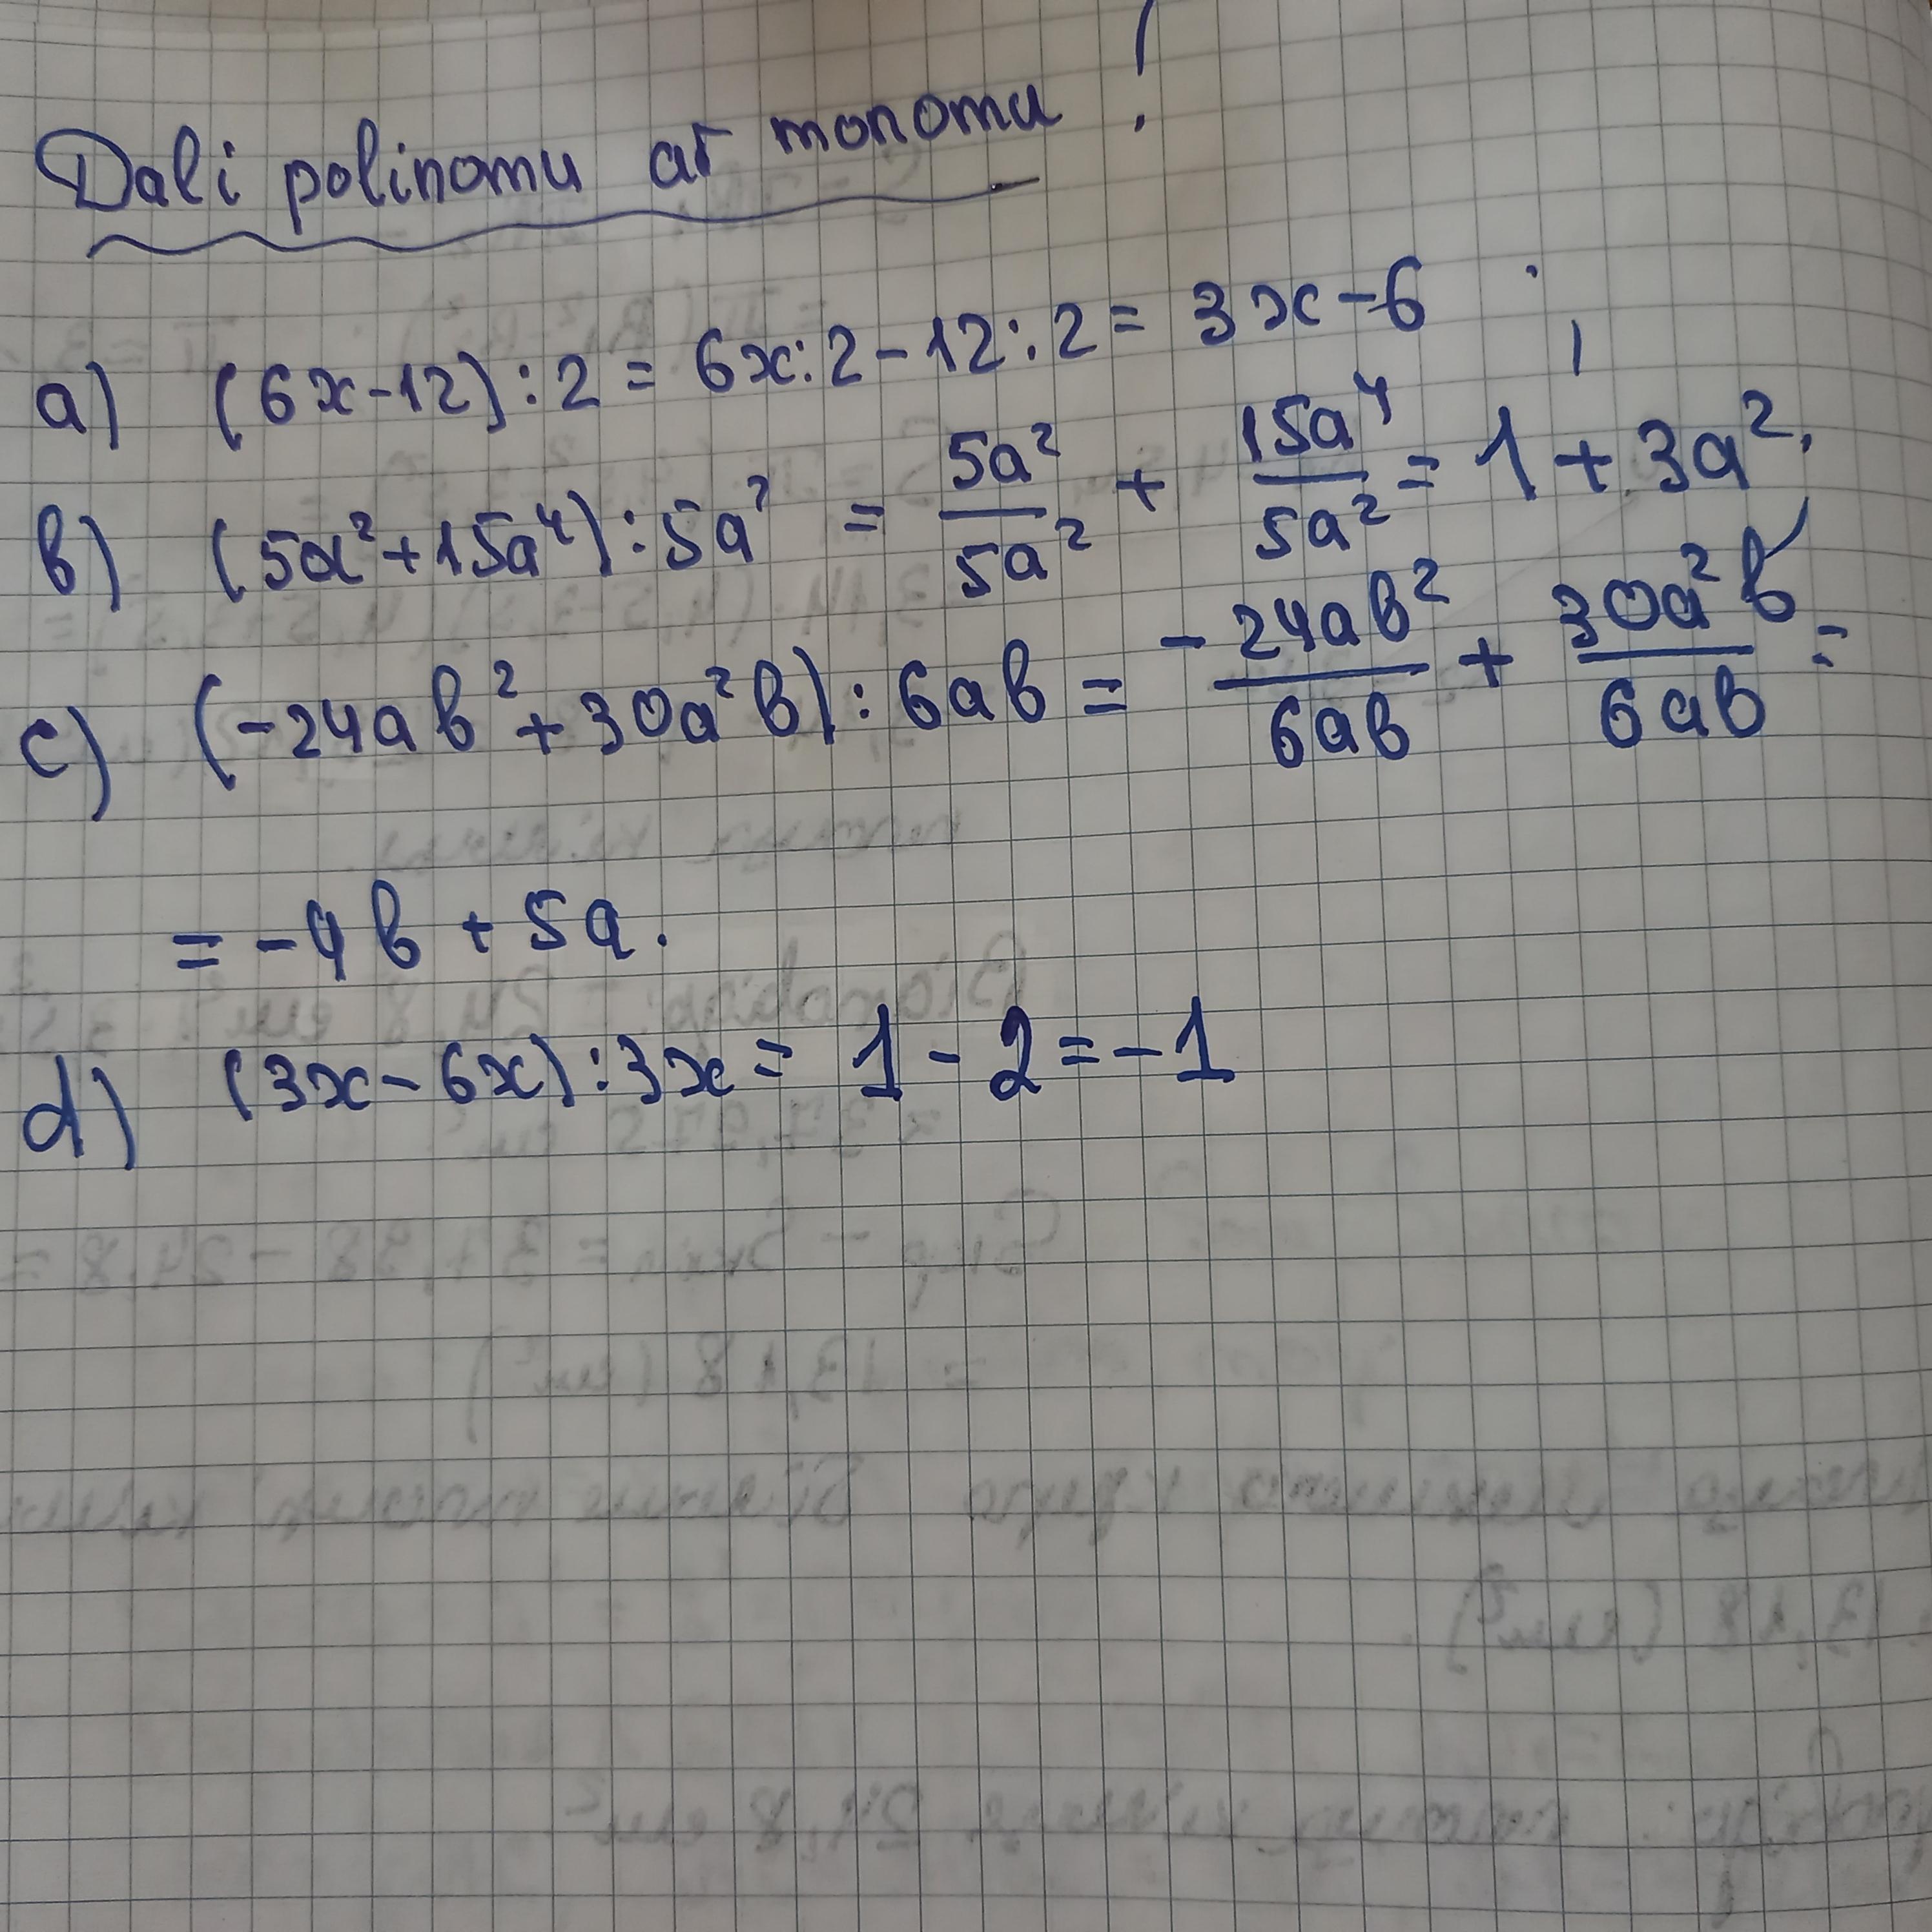 Dali polinomu ar monomu !
a) (6x-12):2 = 6x:2-12:2 = 3x-6 ;
b) (5a²+15a⁴):5a² = 5a²/5a² + 15a⁴/5a² = 1+3a².
c) (-24ab²+30a²b):6ab = -24ab²/6ab + 30a²b/6ab =
= -4b + 5a.
d) (3x-6x):3x = 1-2=-1